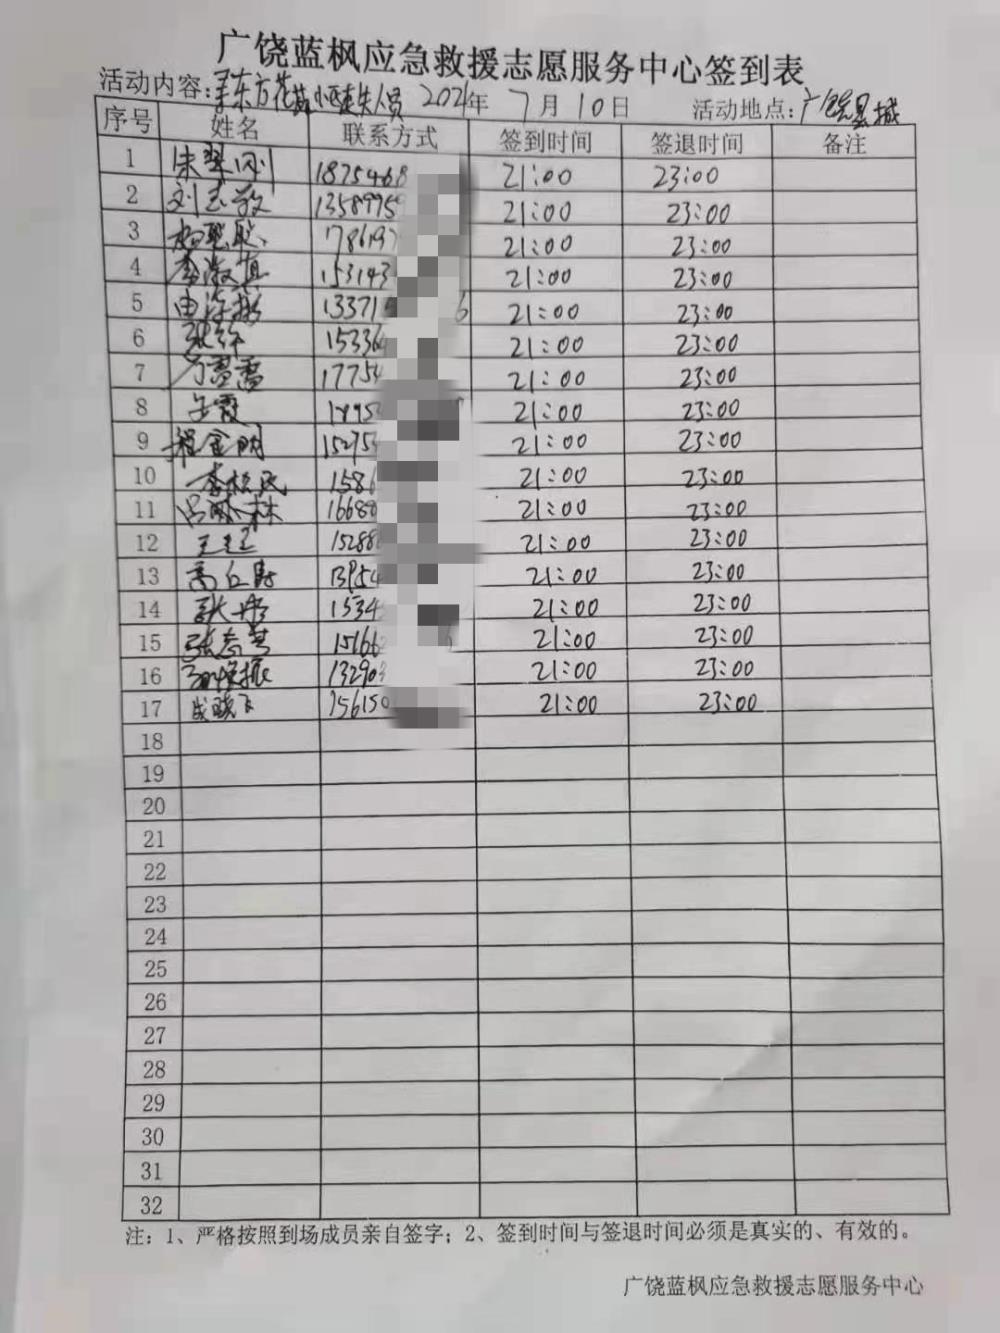 广饶蓝枫应急救援志愿服务中心签到表
活动内容:寻东方花苑小区走失人员 2021年 7月 10日 活动地点:广饶县城
序号 姓名 联系方式 签到时间 签退时间 备注
1 朱翠刚 1875468 21:00 23:00
2 刘玉敏 13589959 21:00 23:00
3 78619 21:00 23:00
4 李淑真 153143 21:00 23:00
5 13371 6 21:00 23:00
6 张 15336 21:00 23:00
7 17754 21:00 23:00
8 王霞 1895 21:00 23:00
9 程金明 15275 21:00 23:00
10 李松民 1586 21:00 23:00
11 吕 林 16688 21:00 23:00
12 15288 21:00 23:00
13 高 54 21:00 23:00
14 1534 21:00 23:00
15 张志芳 15166 21:00 23:00
16 振 13290 21:00 23:00
17 成晓飞 15615 21:00 23:00
18
19
20
21
22
23
24
25
26
27
28
29
30
31
32
注:1、严格按照到场成员亲自签字;2、签到时间与签退时间必须是真实的、有效的。
广饶蓝枫应急救援志愿服务中心